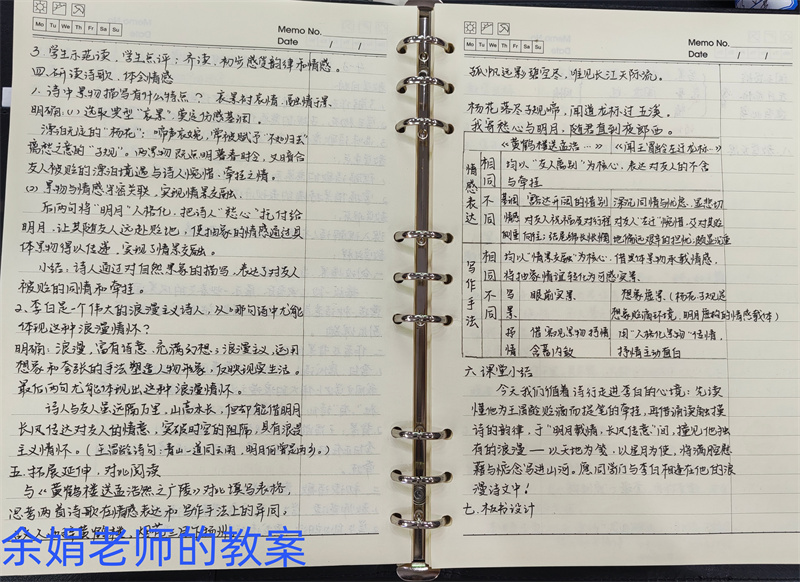 Mo Tu We Th Fr Sa Su
Memo No.
Date / /
3. 学生示范读，学生点评；齐读，初步感受韵律和情感。
四. 研读诗歌，体会情感
1. 诗中景物描写有什么特点？哀景衬哀情，寓情于景。
明确：(1) 选取典型“哀景”奠定伤感基调。
漂泊无定的“杨花”；啼声哀婉，常被赋予“不如归去”
离愁之意的“子规”。两景物既点明暮春时令，又暗合
友人被贬的漂泊境遇与诗人惋惜、牵挂之情。
(2) 景物与情感紧密关联，实现情景交融。
后两句将“明月”人格化，把诗人“愁心”托付给
明月，让其随友人远赴贬地，使抽象的情感通过具
体景物得以传递，实现了情景交融。
小结：诗人通过对自然景喜的描写，表达了对友人
被贬的同情和牵挂。
2、李白是一个伟大的浪漫主义诗人，从哪句诗中尤能
体现这种浪漫情怀？
明确：浪漫，富有诗意，充满幻想；浪漫主义，运用
想象和夸张的手法塑造人物形象，反映现实生活。
最后两句尤能体现出这种浪漫情怀。
诗人与友人虽远隔万里，山高水长，但却能借明月
长风传达对友人的情意，突破时空的阻隔，具有浪漫
主义情怀。(王昌龄诗句：青山一道同云雨，明月何曾是两乡。)
五. 拓展延伸，对比阅读
与《黄鹤楼送孟浩然之广陵》对比填写表格，
思考两首诗歌在情感表达和写作手法上的异同。
余娟老师的教案
Mo Tu We Th Fr Sa Su
Memo No.
Date / /
孤帆远影碧空尽，唯见长江天际流。
杨花落尽子规啼，闻道龙标过五溪。
我寄愁心与明月，随君直到夜郎西。
《黄鹤楼送孟浩……》 《闻王昌龄左迁龙标…》
情感表达
相同 均以“友人离别”为核心，表达对友人的不舍
与牵挂
不同 基调 豁达开阔的惜别 深沉同情与忧愁，显悲切
情感侧重 对友人祝福及对行程向往；结尾绵长怅惘 对友人“左迁”惋惜，及对其贬地偏远艰辛的担忧
写作手法
相同 均以“情景交融”为核心，借具体景物承载情感，
将抽象情谊转化为可感实景。
不同 写景 眼前实景 想象虚景(杨花、子规是
想象贬谪环境，明月虚构的情感载体)
抒情 借客观景物抒情 用“人格化景物”传情，
含蓄内敛 抒情主动直白
六. 课堂小结
今天我们循着诗行走进李白的心境：先读
懂他为王昌龄贬谪而提笔的牵挂，再借诵读触摸
诗的韵律，于“明月载情，长风传意”间，撞见他独
有的浪漫——以天地为笺，以星月为使，将满腔愁
绪与惦念写进山河。愿同学们与李白相逢在他的浪
漫诗文中！
七. 板书设计